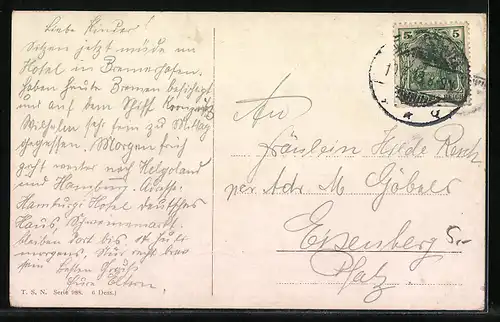 Liebe Kinder!
Sitzen jetzt müde im
Hotel in Bremerhafen.
haben heute Bremen besichtigt
und auf dem Schiff Kronprinz
Wilhelm sehr fein zu Mittag
gegessen. Morgen früh
geht weiter nach Helgoland
und Hamburg. Adresse:
Hamburg: Hotel deutsches
Haus,
bleiben dort bis 14 Juli
morgens. Nur recht brav
sein besten Gruss
Eure Eltern.
T. S. N. Serie 988. (6 Dess.)
5 5
An
Fräulein Hilde
per Adr M Göbels
Eisenberg
Pfalz.
5.-